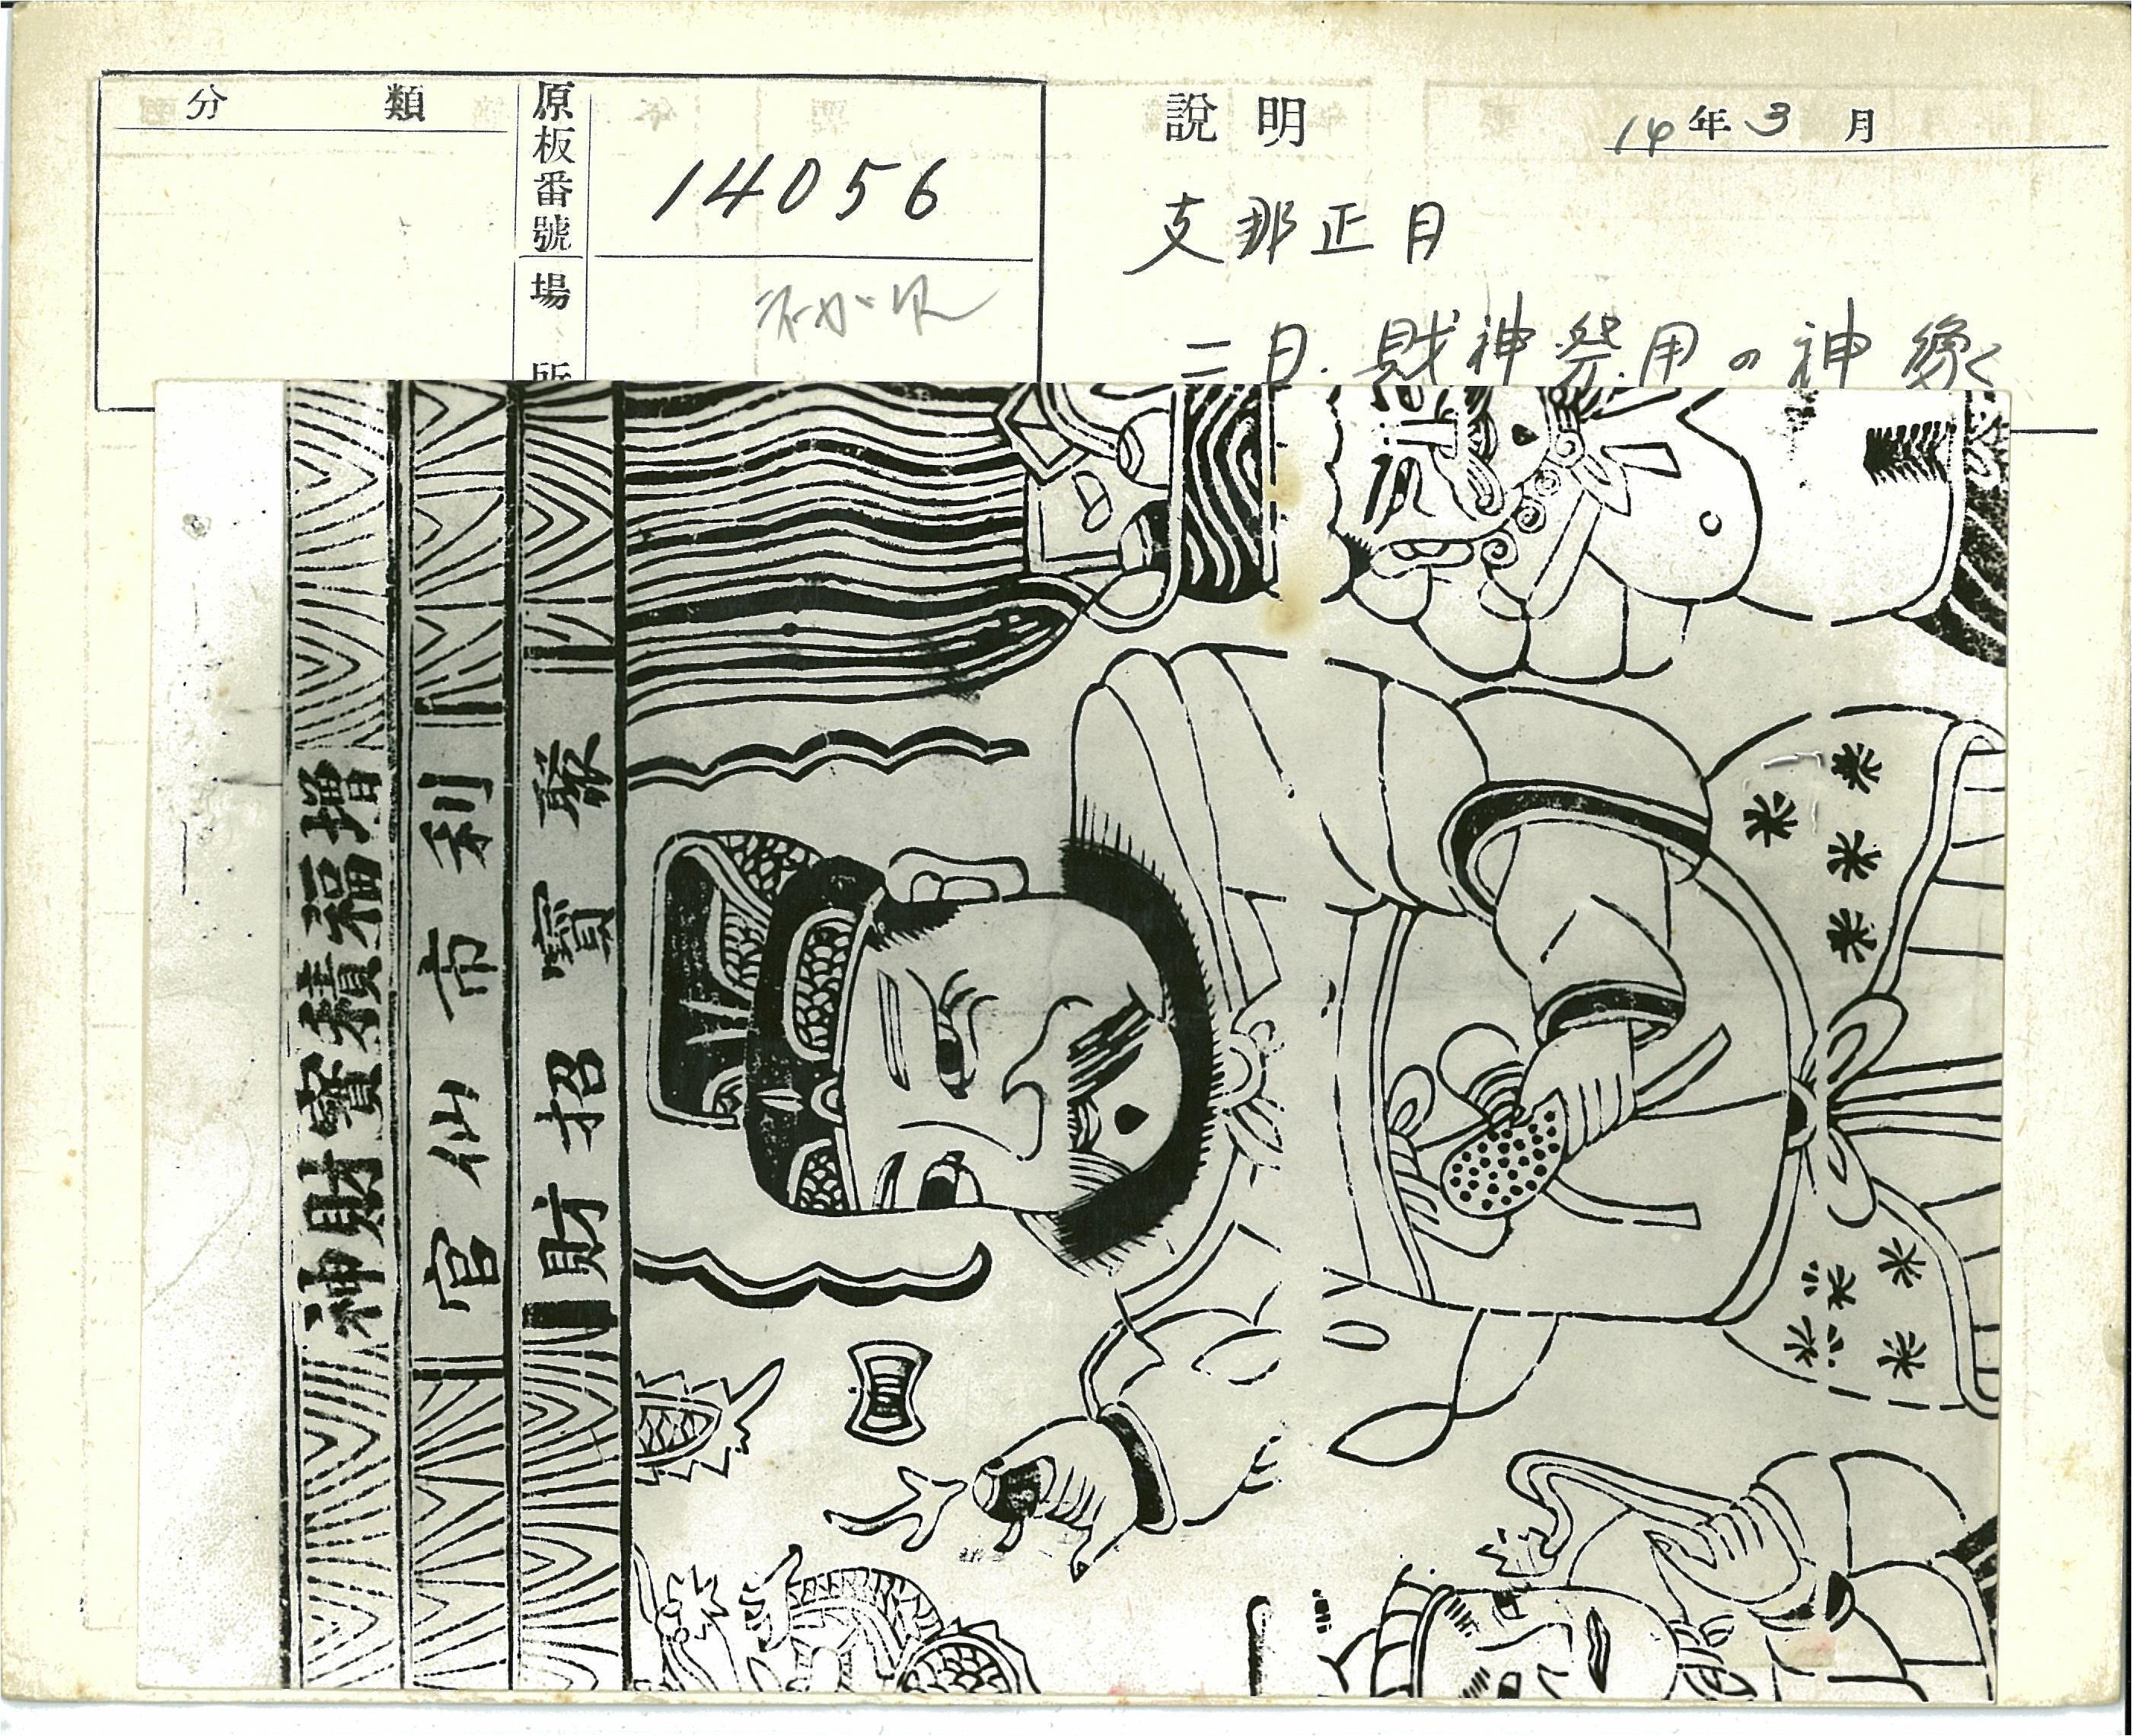 分類
原板番號
14056
場所
說明
14年3月
支那正月
二日.財神祭用の神像
增福積寶財神
利市仙官
聚寶招財